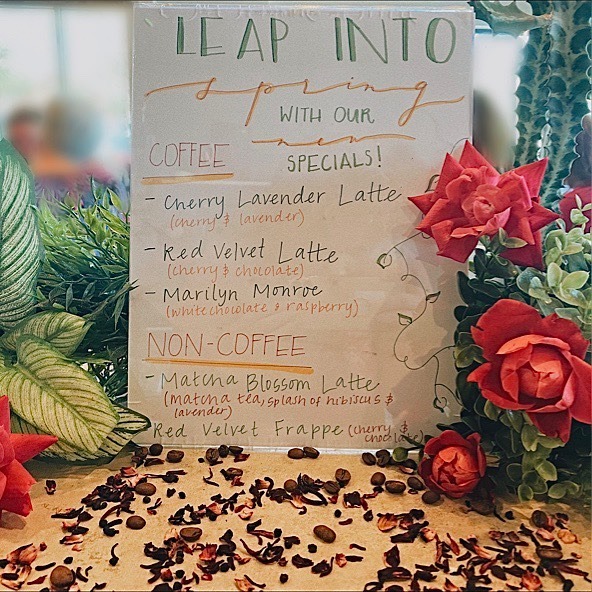 LEAP INTO
spring
WITH OUR
new
SPECIALS!
COFFEE
- Cherry Lavender Latte
(cherry & lavender)
- Red Velvet Latte
(cherry & chocolate)
- Marilyn Monroe
(white chocolate & raspberry)
NON-COFFEE
- Matcha Blossom Latte
(matcha tea, splash of hibiscus &
lavender)
Red Velvet Frappe (cherry &
chocolate)